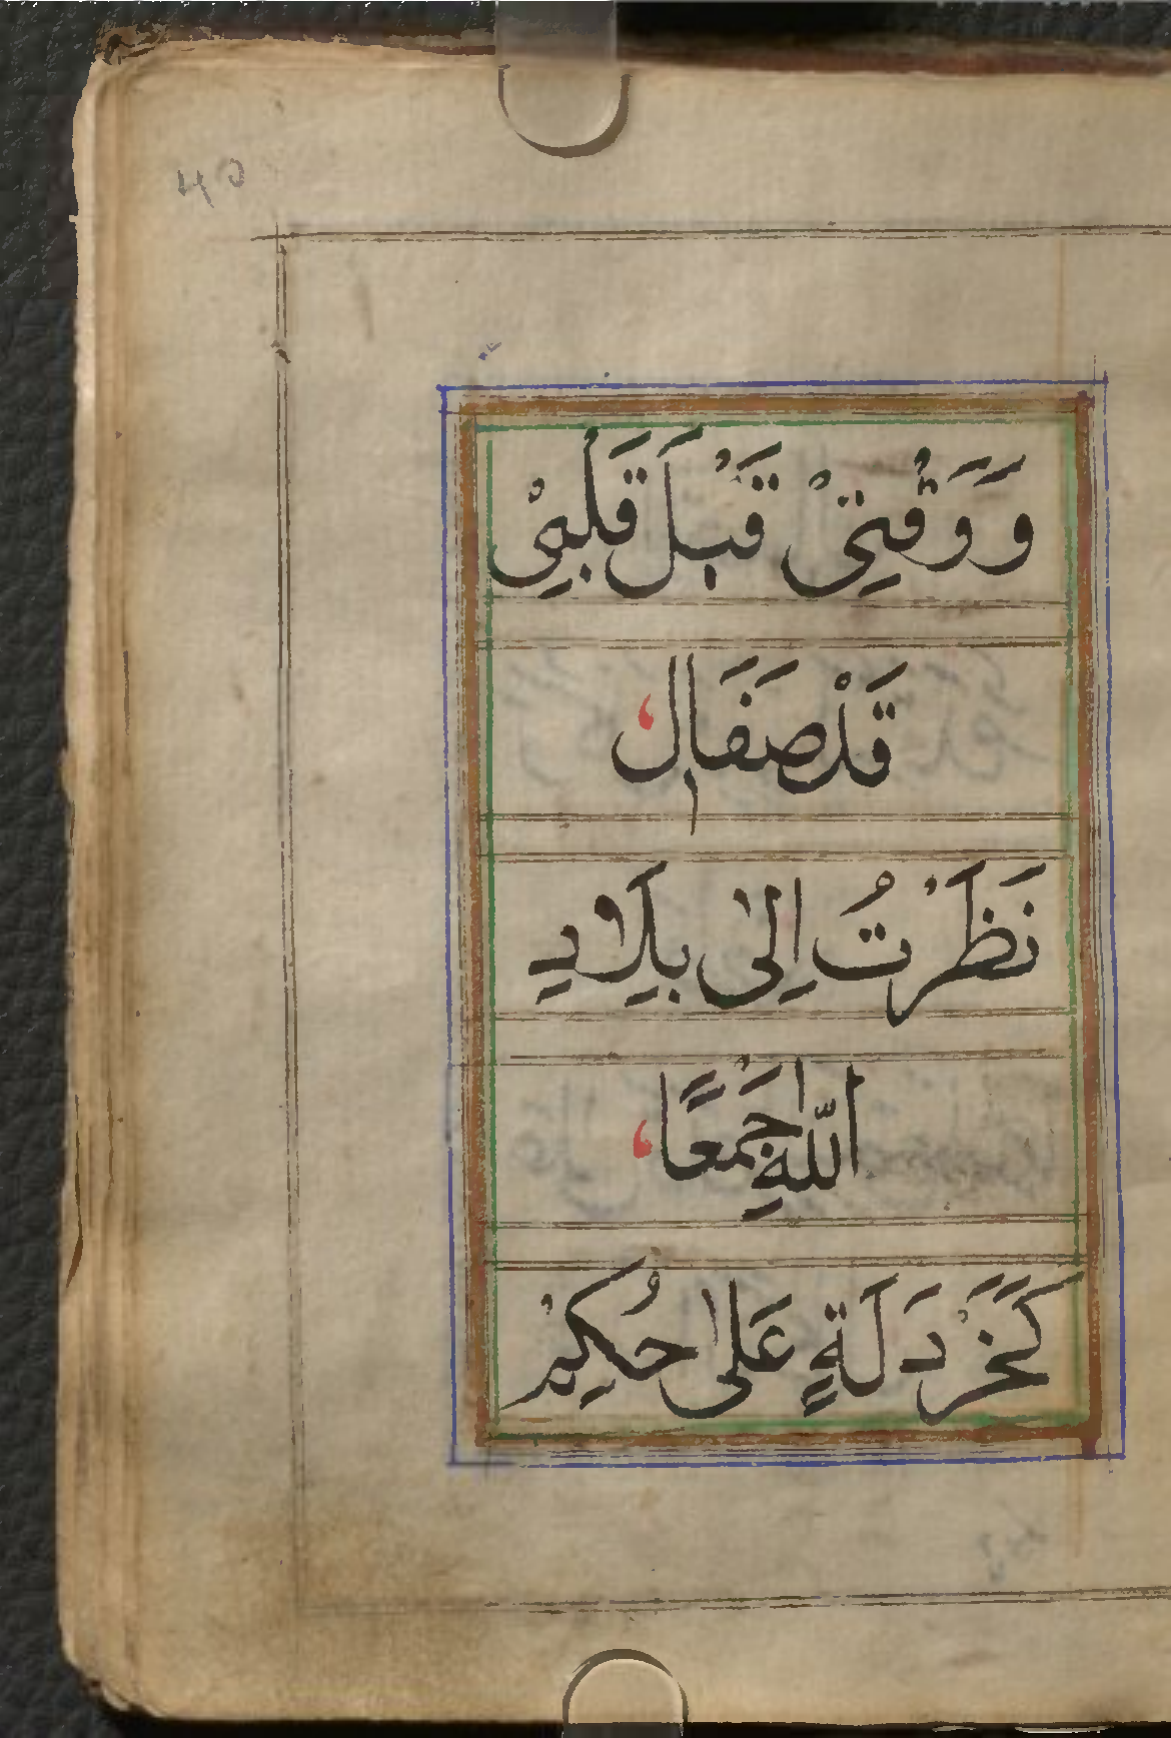 40
وَوَقْتِیْ قَبْلَ قَلْبِیْ
قَدْصَفَالِ
نَظَرْتُ اِلیٰ بِلَادِ
اللّٰهِ جَمْعًا
كَخَرْدَلَةٍ عَلیٰ حُكِمِ